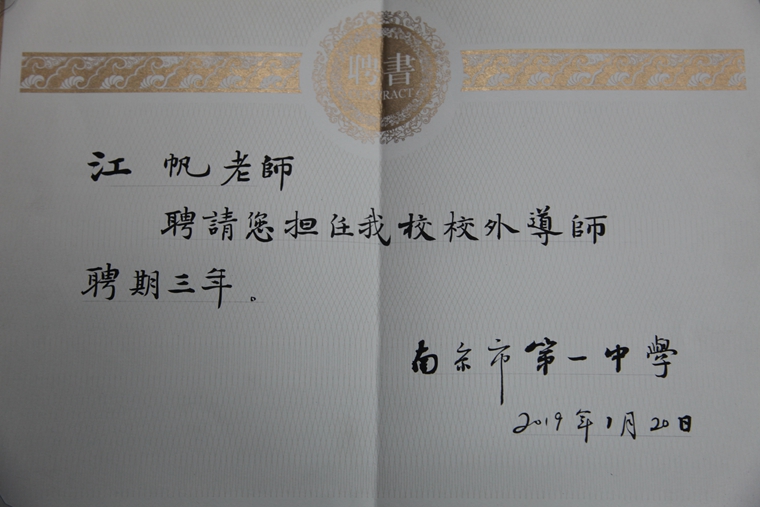 聘書
RACT
江 帆老師
聘請您担任我校校外導師
聘期三年。
南京市第一中學
2019年1月20日